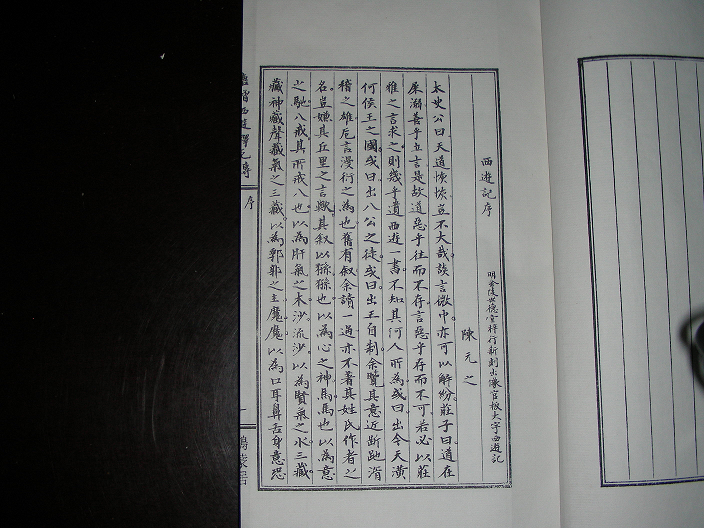 西遊記序
明金陵世德堂梓行新刻出像官板大字西遊記
陳元之
太史公曰天道恢恢豈不大哉談言微中亦可以解紛莊子曰道在
屎溺善乎立言是故道惡乎往而不存言惡乎存而不可若必以莊
雅之言求之則幾乎遺西遊一書不知其何人所為或曰出今天潢
何侯王之國。或曰出八公之徒。或曰出王自制余覽其意近跅跎滑
稽之雄卮言漫衍之為也。舊有叙余讀一過亦不著其姓氏作者之
名豈嫌其丘里之言歟。其叙以猻猻也。以為心之神馬馬也以為意
之馳。八戒其所戒八也以為肝氣之木沙流沙以為腎氣之水三藏。
藏神藏聲藏氣之三藏。以為郛郭之主魔魔。以為口耳鼻舌身意恐
西遊釋厄傳
序
一